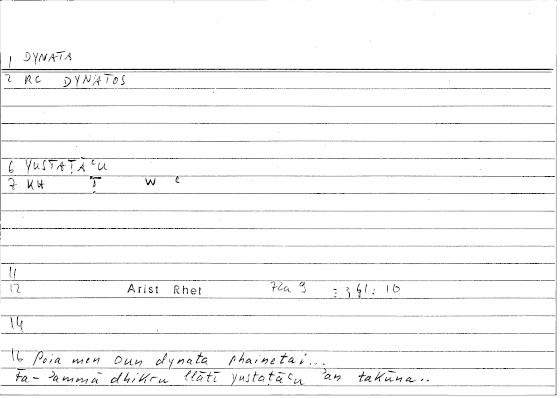 1 DYNATA
2 RC DYNATOS
6 YUSTAṬĀʿU
7 KH Ṭ W ʿ
11
12 Arist Rhet 72a 9 10
14
16 Poia men oun dynata phainetai...
fa-ʾammā dhikru llātī yustaṭāʿu ʾan takūna..